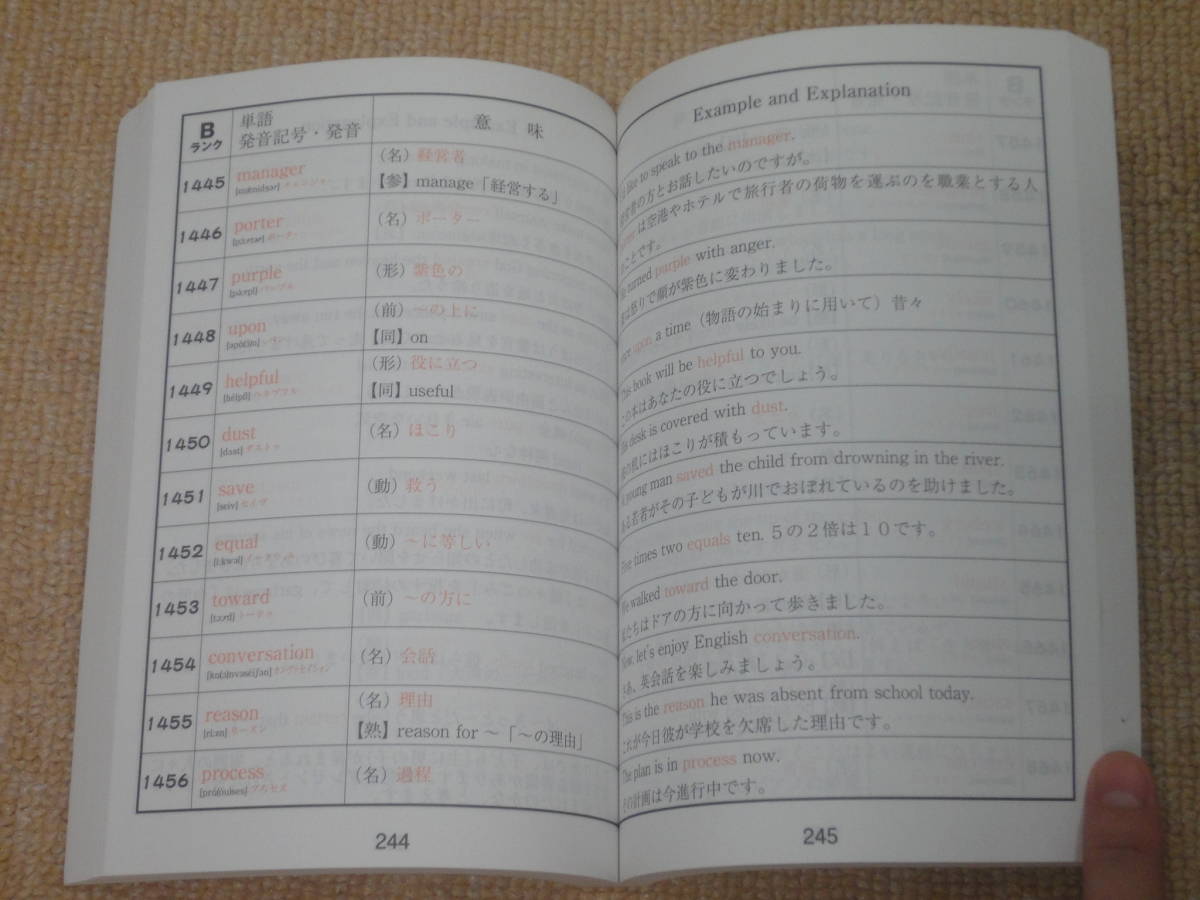 B
ランク
単語
発音記号・発音
意 味
1445
manager
(名) 経営者
【参】manage「経営する」
1446
porter
(名) ポーター
1447
purple
(形) 紫色の
1448
upon
(前) ～の上に
【同】on
1449
helpful
(形) 役に立つ
【同】useful
1450
dust
(名) ほこり
1451
save
(動) 救う
1452
equal
(動) ～に等しい
1453
toward
(前) ～の方に
1454
conversation
(名) 会話
1455
reason
(名) 理由
【熟】reason for ～「～の理由」
1456
process
(名) 過程
244
Example and Explanation
like to speak to the manager.
の方とお話したいのですが。
は空港やホテルで旅行者の荷物を運ぶのを職業とする人
ことです。
turned purple with anger.
は怒りで顔が紫色に変わりました。
upon a time（物語の始まりに用いて）昔々
book will be helpful to you.
の本はあなたの役に立つでしょう。
desk is covered with dust.
の机にはほこりが積もっています。
young man saved the child from drowning in the river.
る若者がその子どもが川でおぼれているのを助けました。
times two equals ten. 5の2倍は10です。
We walked toward the door.
たちはドアの方に向かって歩きました。
Now, let's enjoy English conversation.
あ、英会話を楽しみましょう。
This is the reason he was absent from school today.
これが今日彼が学校を欠席した理由です。
The plan is in process now.
その計画は今進行中です。
245